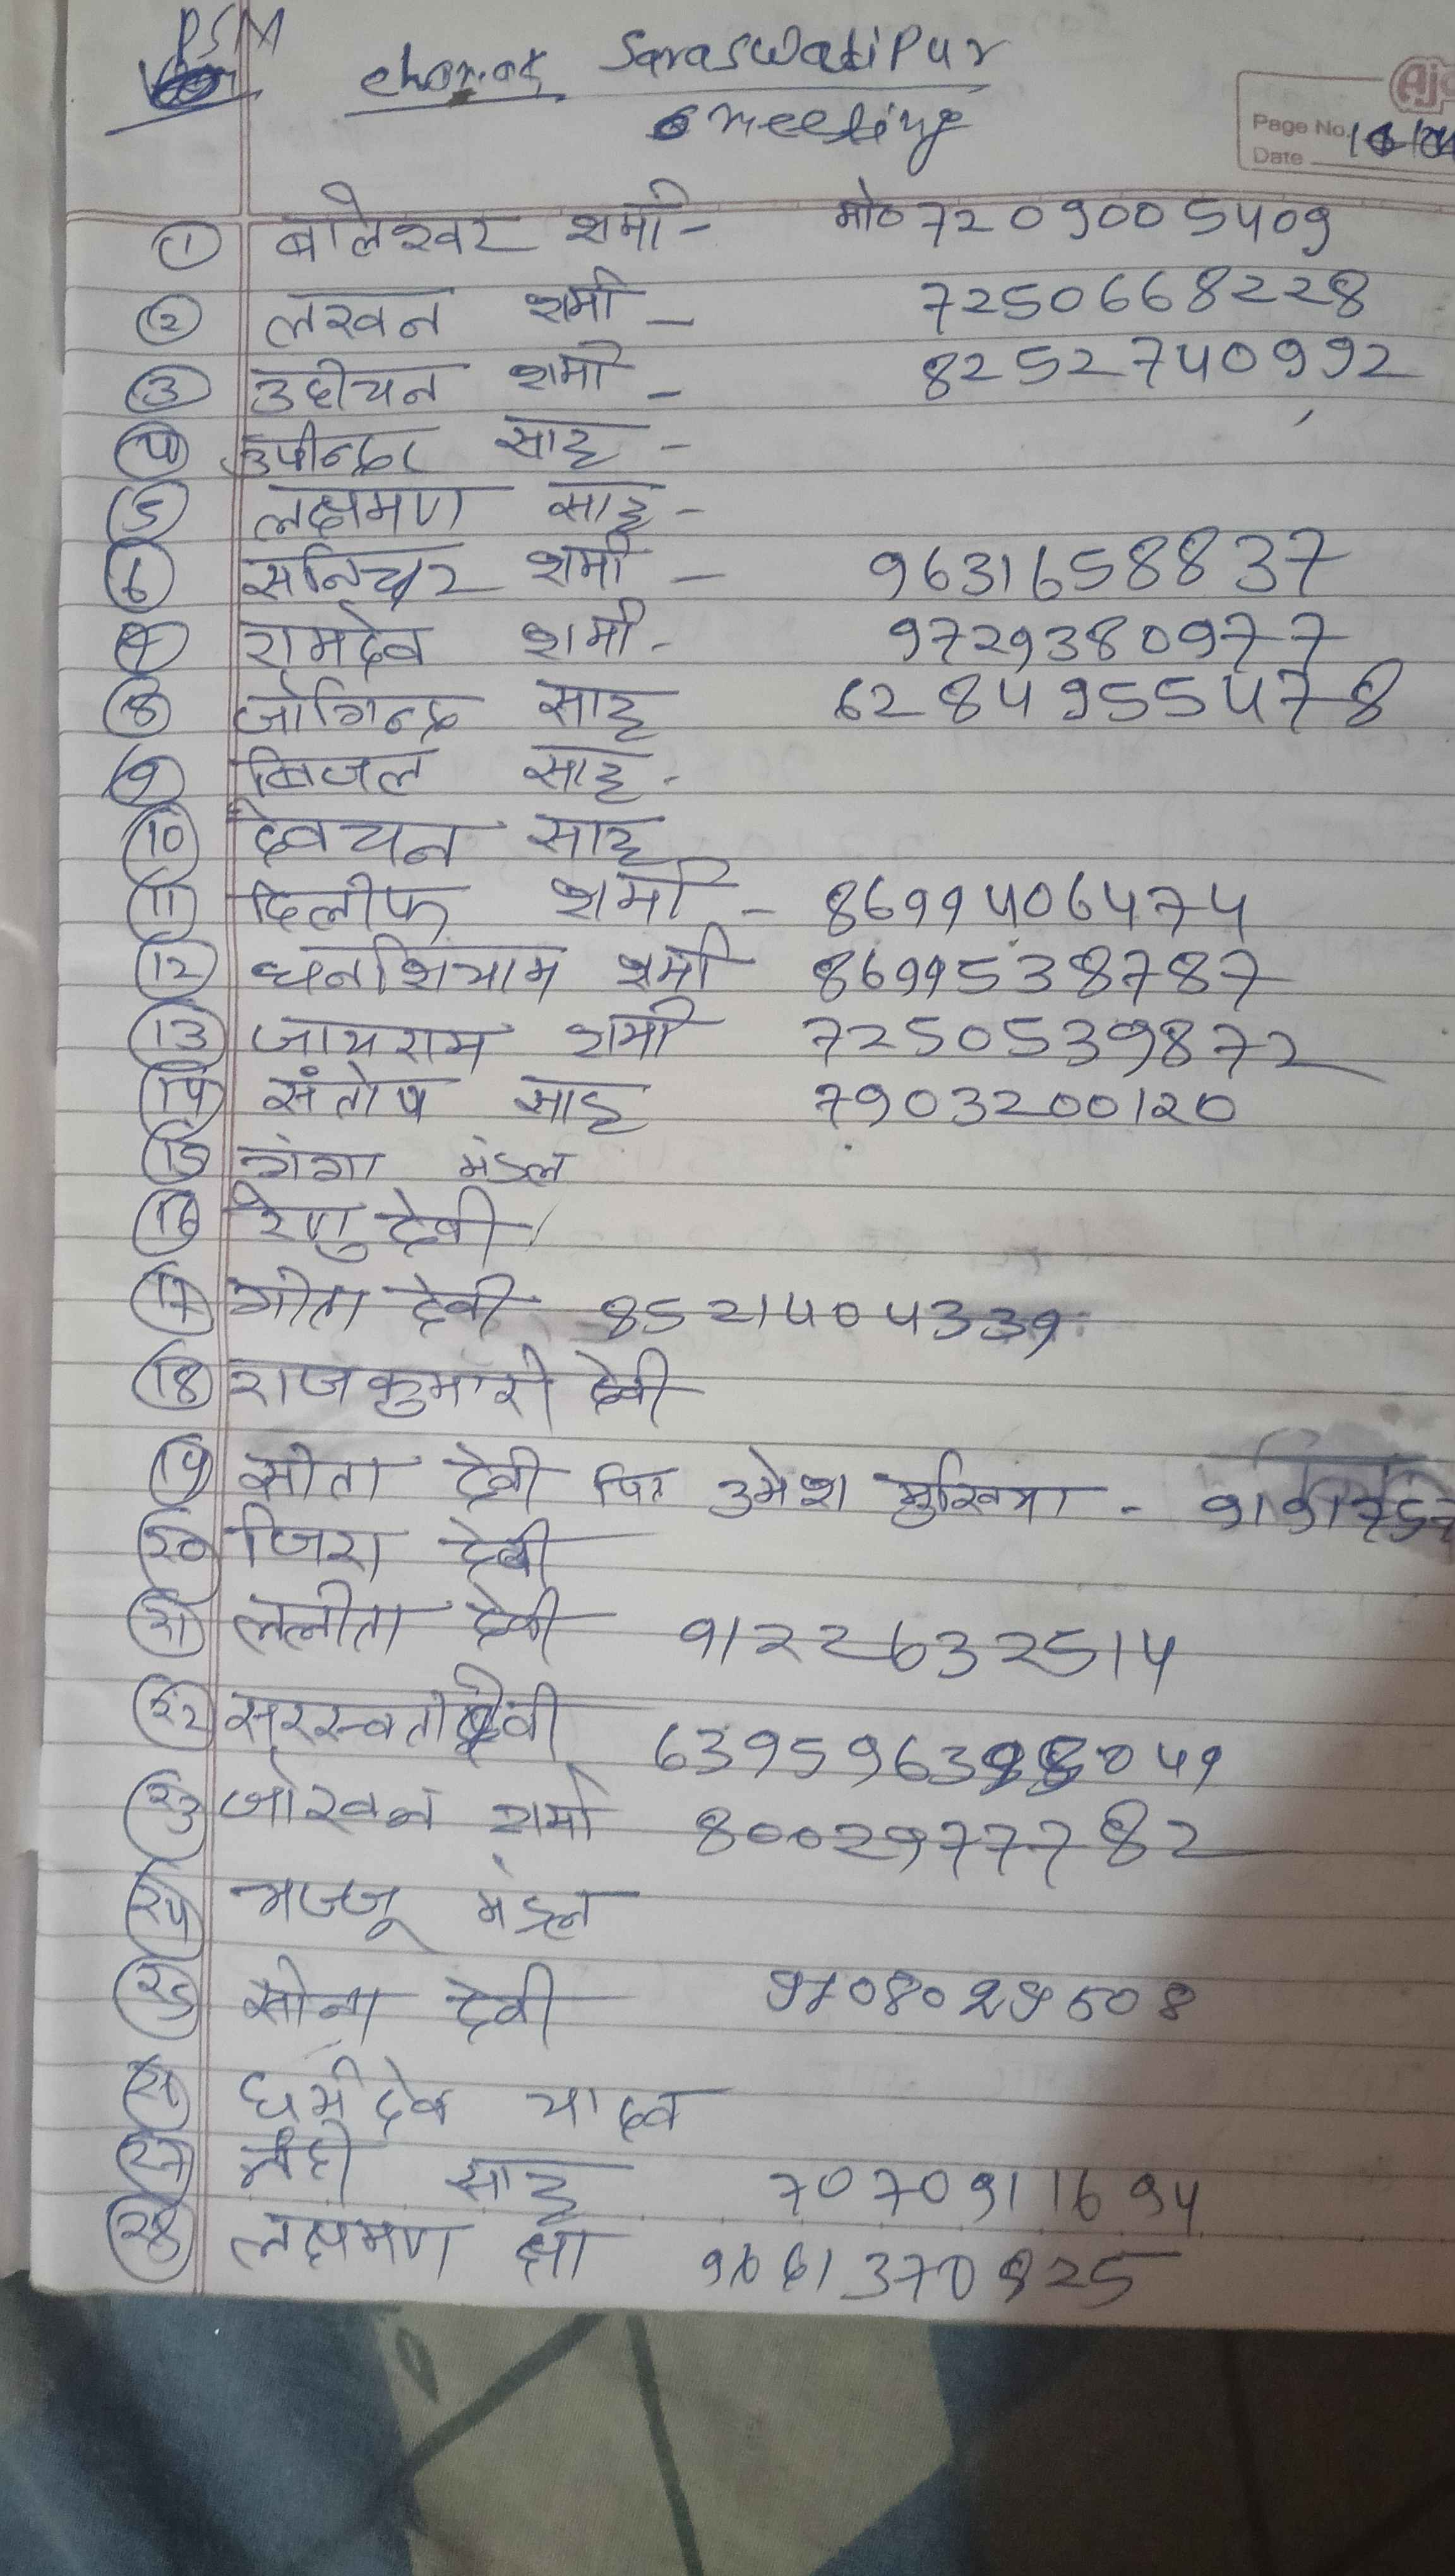 PSM
Saraswatipur
meeting
Page No.
Date
① बालेश्वर शर्मा - मो० 7209005409
② लखन शर्मा - 7250668228
③ उदीयन शर्मा - 8252740992
④ उपीन्दर साह -
⑤ लक्षमण साह -
⑥ सनिचर शर्मा - 9631658837
⑦ रामदेव शर्मा - 9729380977
⑧ जोगिन्द्र साह 6284955478
⑨ बिजल साह -
⑩ देवचन साह
⑪ दिलीफ शर्मा - 8699406474
⑫ धनशियाम शर्मा 8699538787
⑬ जायराम शर्मा 7250539872
⑭ संतोष साह 7903200120
⑮ गंगा मंडल
⑯ रेणु देवी
⑰ गीता देवी 8521404339
⑱ राजकुमारी देवी
⑲ सीता देवी उमेश मुखिया -
⑳ जिरा देवी
㉑ ललीता देवी 9122632514
㉒ सरस्वती देवी
㉓ जोखन शर्मा 8002977782
㉔ मंडल
㉕ सोना देवी
㉖ धर्मदेव यादव
㉗ साह 7070911694
㉘ लक्षमण